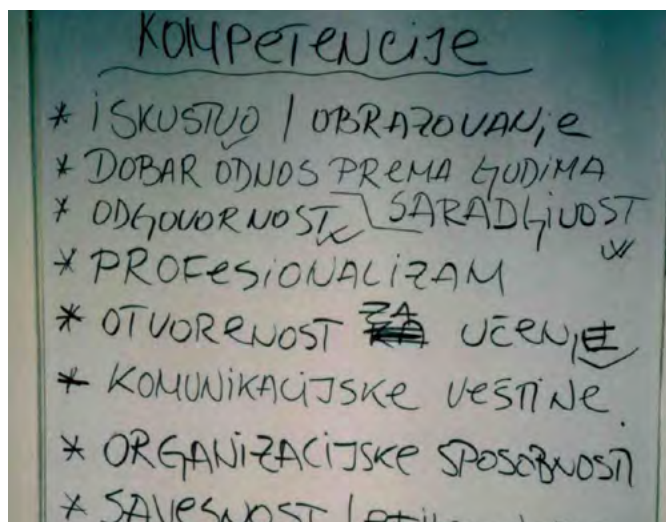 KOMPETENCIJE
* ISKUSTVO / OBRAZOVANJE
* DOBAR ODNOS PREMA LJUDIMA
* ODGOVORNOST \ SARADLJIVOST
* PROFESIONALIZAM
* OTVORENOST ZA UČENJE
* KOMUNIKACIJSKE VEŠTINE.
* ORGANIZACIJSKE SPOSOBNOSTI
* SAVESNOST /